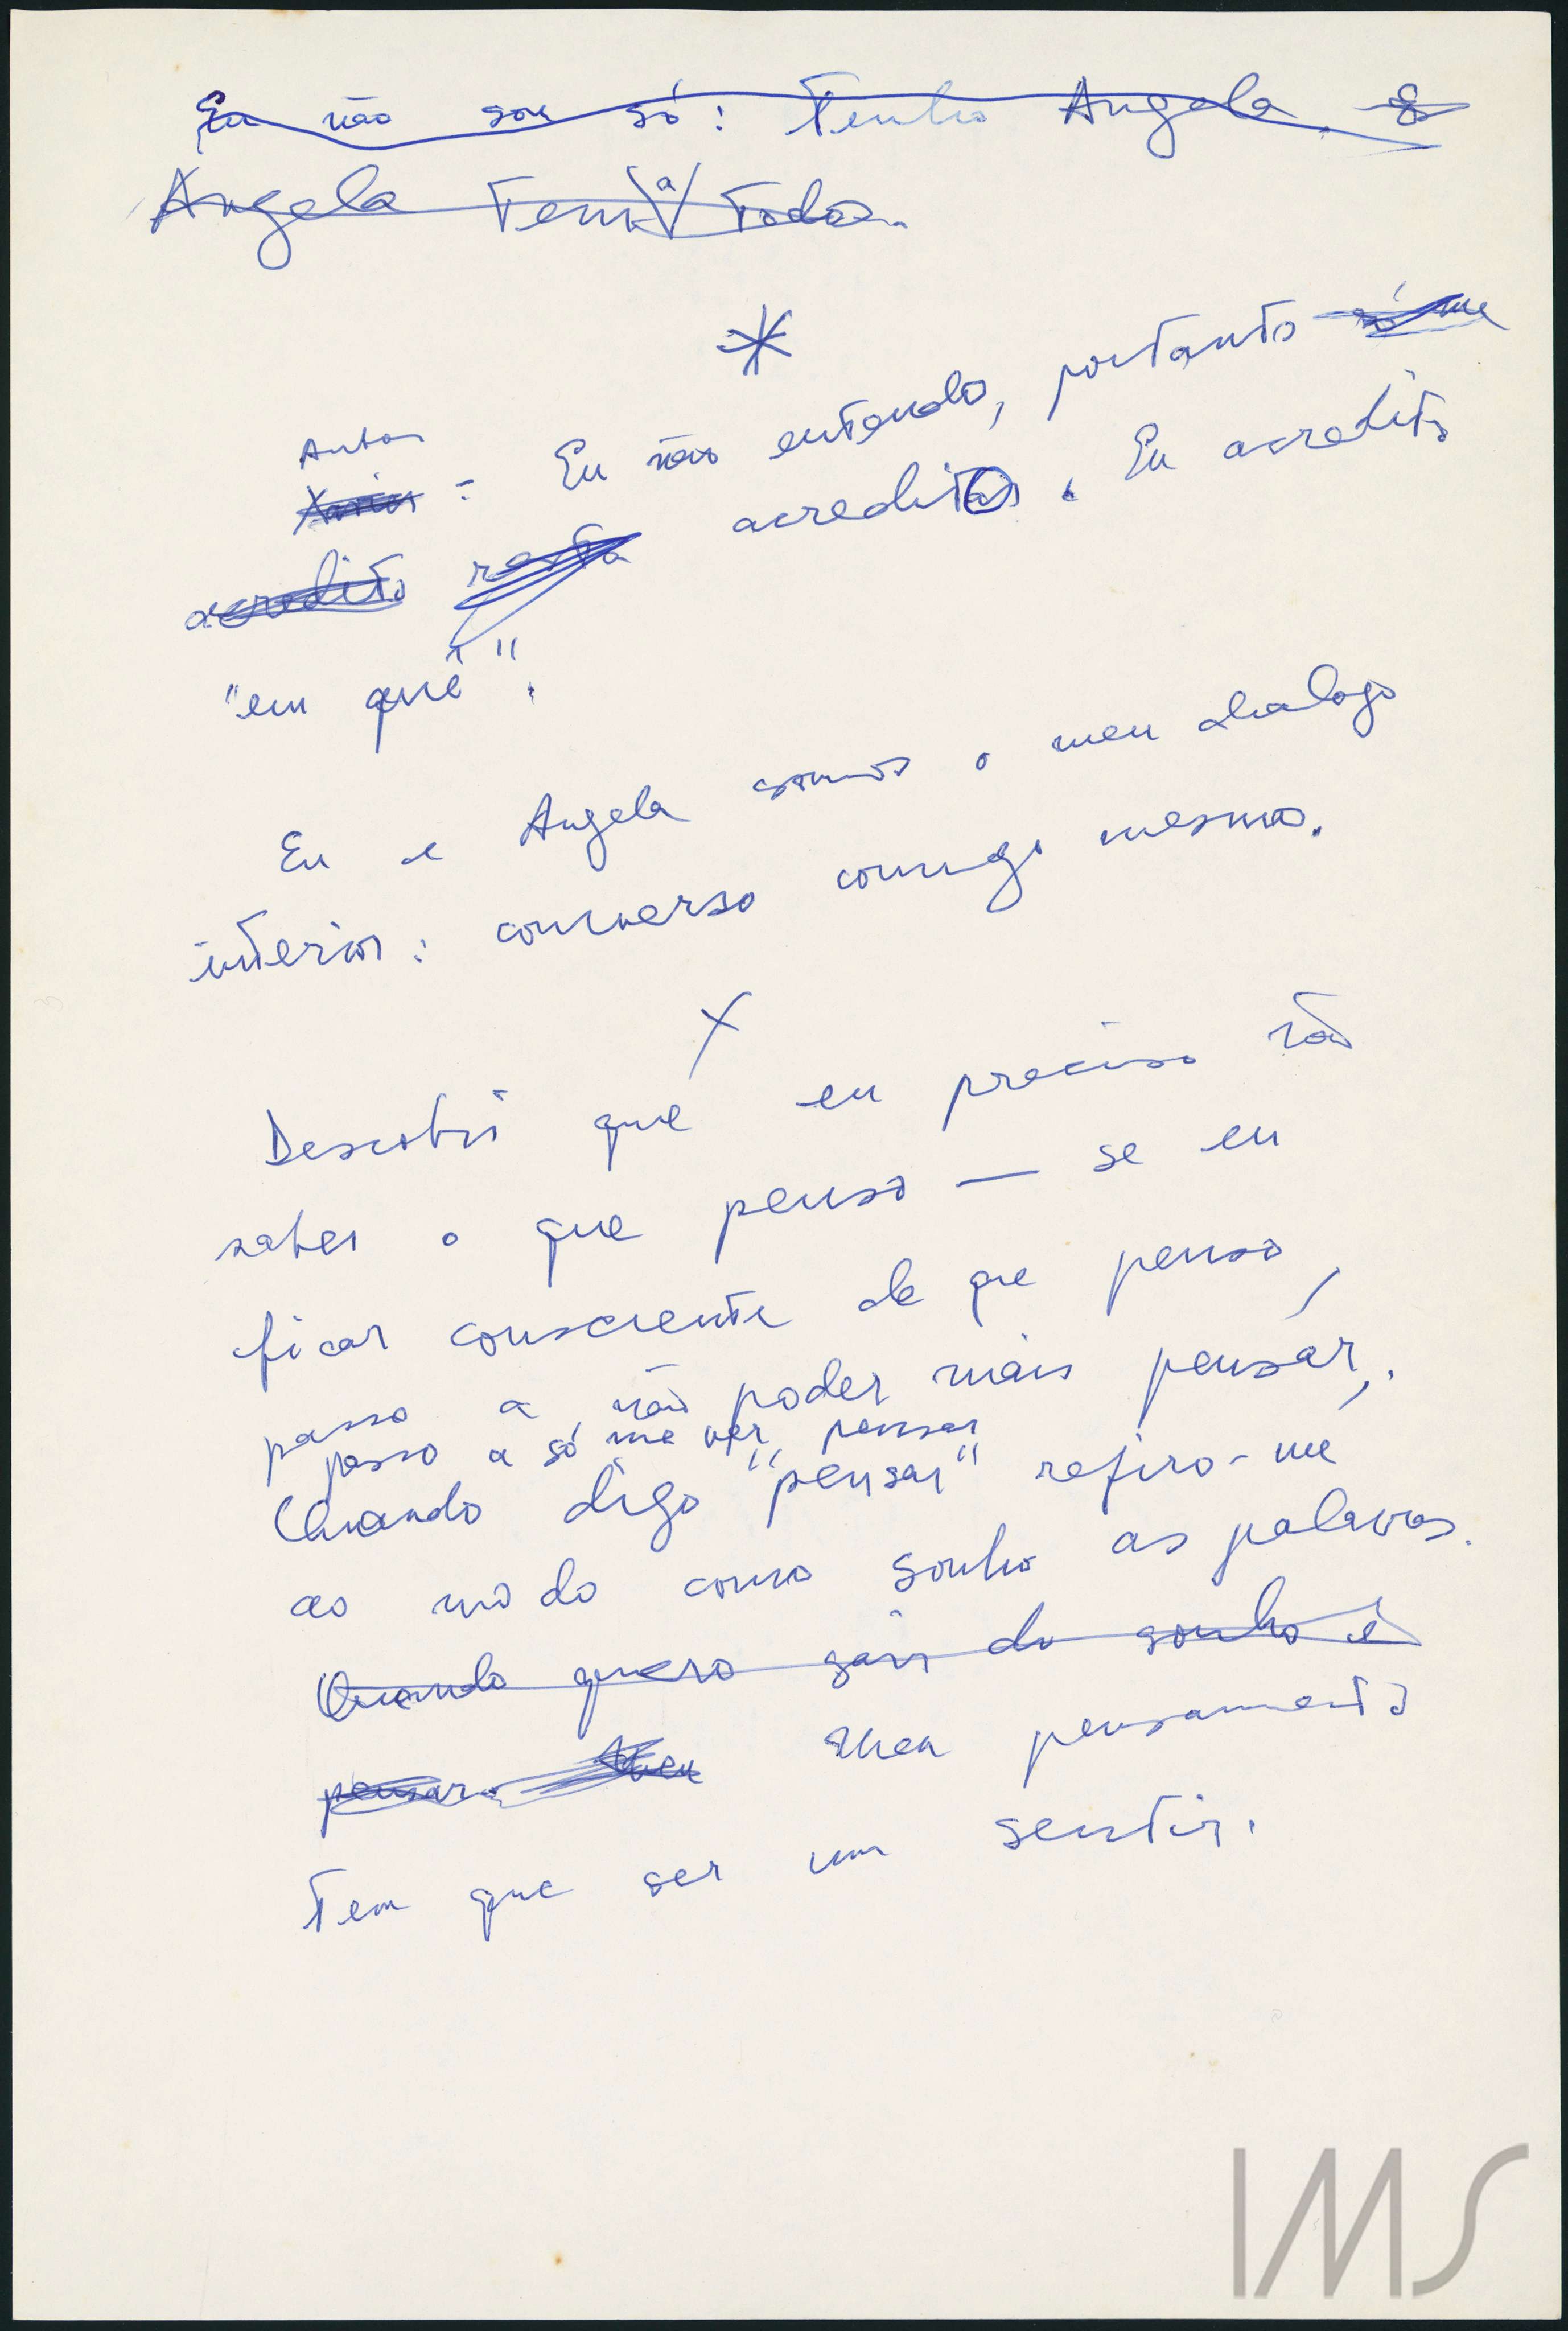 Eu não sou só: Tenho Angela. E
Angela tem a todos.
*
Autor
: Eu não entendo, portanto só me
acredito resta acredito. Eu acredito
"em quê".
Eu e Angela somos o meu dialogo
interior: converso comigo mesmo.
X
Descobri que eu preciso não
saber o que penso — se eu
ficar consciente de que penso,
passo a não poder mais pensar,.
passo a só me ver pensar
Quando digo "pensar" refiro-me
ao modo como sonho as palavras.
Quando quero sair do sonho é
pensar. Meu Meu pensamento
tem que ser um sentir.
IMS